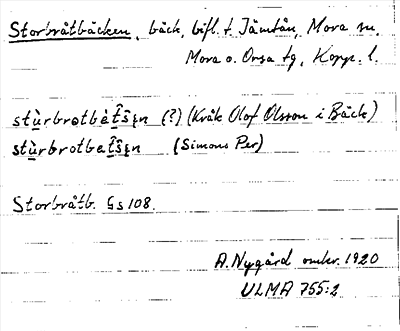 Storbråtbäcken, bäck, bifl. t. Jämtån, Mora sn,
Mora o. Orsa tg, Kopp. l.
stùrbrotbèt̂ŝęn (?) (Kråk Olof Olsson i Bäck)
stùrbrotbet̂ŝęn (Simons Per)
Storbråtb. Gs 108.
A. Nygård omkr. 1920
ULMA 755:2